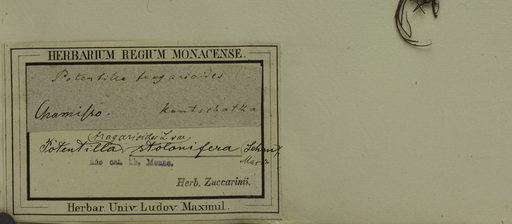 HERBARIUM REGIUM MONACENSE.
Potentilla fragarioides
Chamisso. Kamtschatka
fragarioides L var.
Potentilla stolonifera Lehm
Herb. Zuccarinii.
Herbar. Univ. Ludov. Maximil.